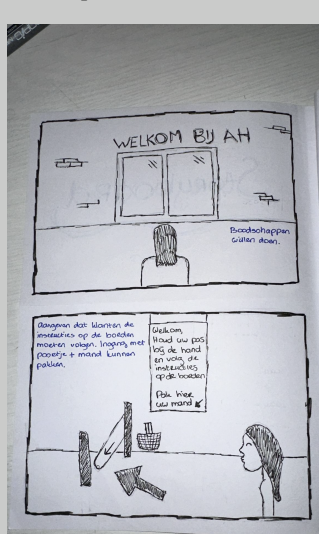 WELKOM BIJ AH
Boodschappen
willen doen.
Aangeven dat klanten de
instructies op de borden
moeten volgen. Ingang met
poortje + mand kunnen
pakken.
Welkom,
Houd uw pas
bij de hand
en volg de
instructies
op de borden
Pak hier
uw mand